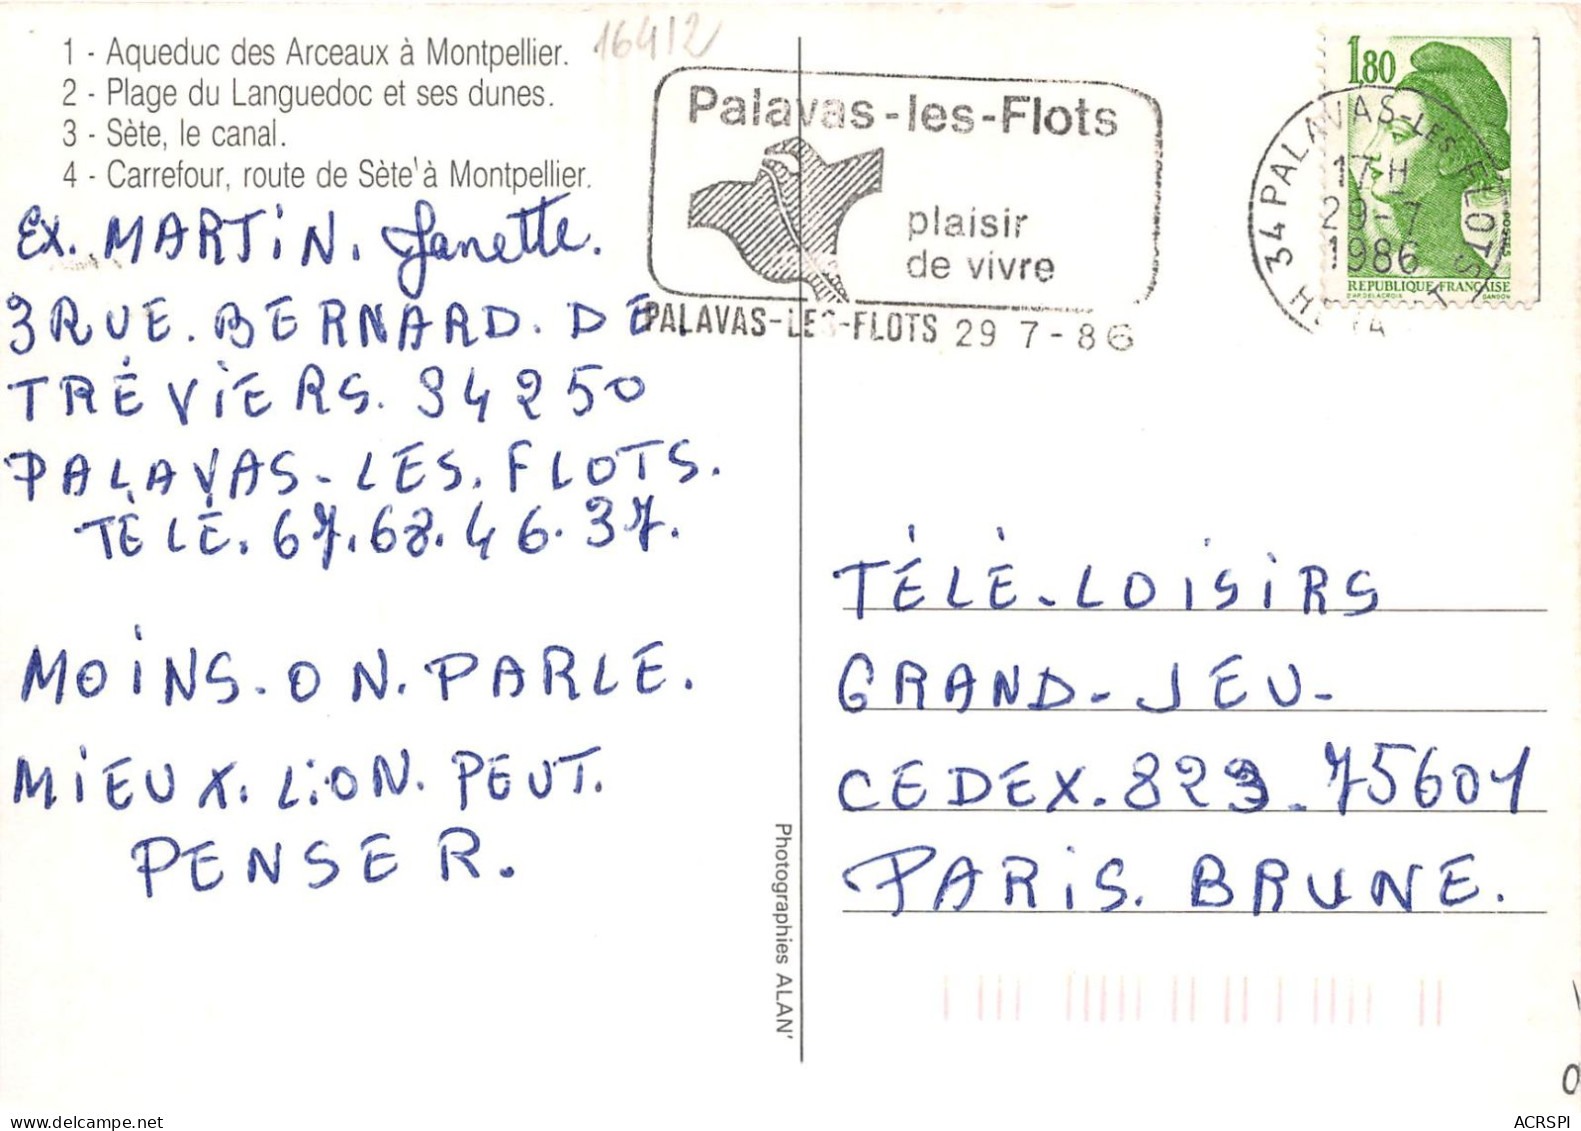 1 - Aqueduc des Arceaux à Montpellier.
2 - Plage du Languedoc et ses dunes.
3 - Sète, le canal.
4 - Carrefour, route de Sète à Montpellier.
16412
Palavas-les-Flots
plaisir
de vivre
PALAVAS-LES-FLOTS 29 7-86
1,80
34 PALAVAS-LES-FLOTS
17 H
29-7
1986
POSTES
REPUBLIQUE FRANÇAISE
D'AP. DELACROIX GANDON
Ex. MARTiN. Janette.
3 RUE. BERNARD. DE
TRÉViERS. 34250
PALAVAS-LES. FLOTS.
TÈLÈ. 67.68.46.37.
MOiNS-ON.PARLE.
MiEUX.LiON.PEUT.
PENSER.
Photographies ALAN'
TÉLÈ-LOiSiRS
GRAND-JEU-
CEDEX.823.75601
PARiS.BRUNE.
ACRSPI